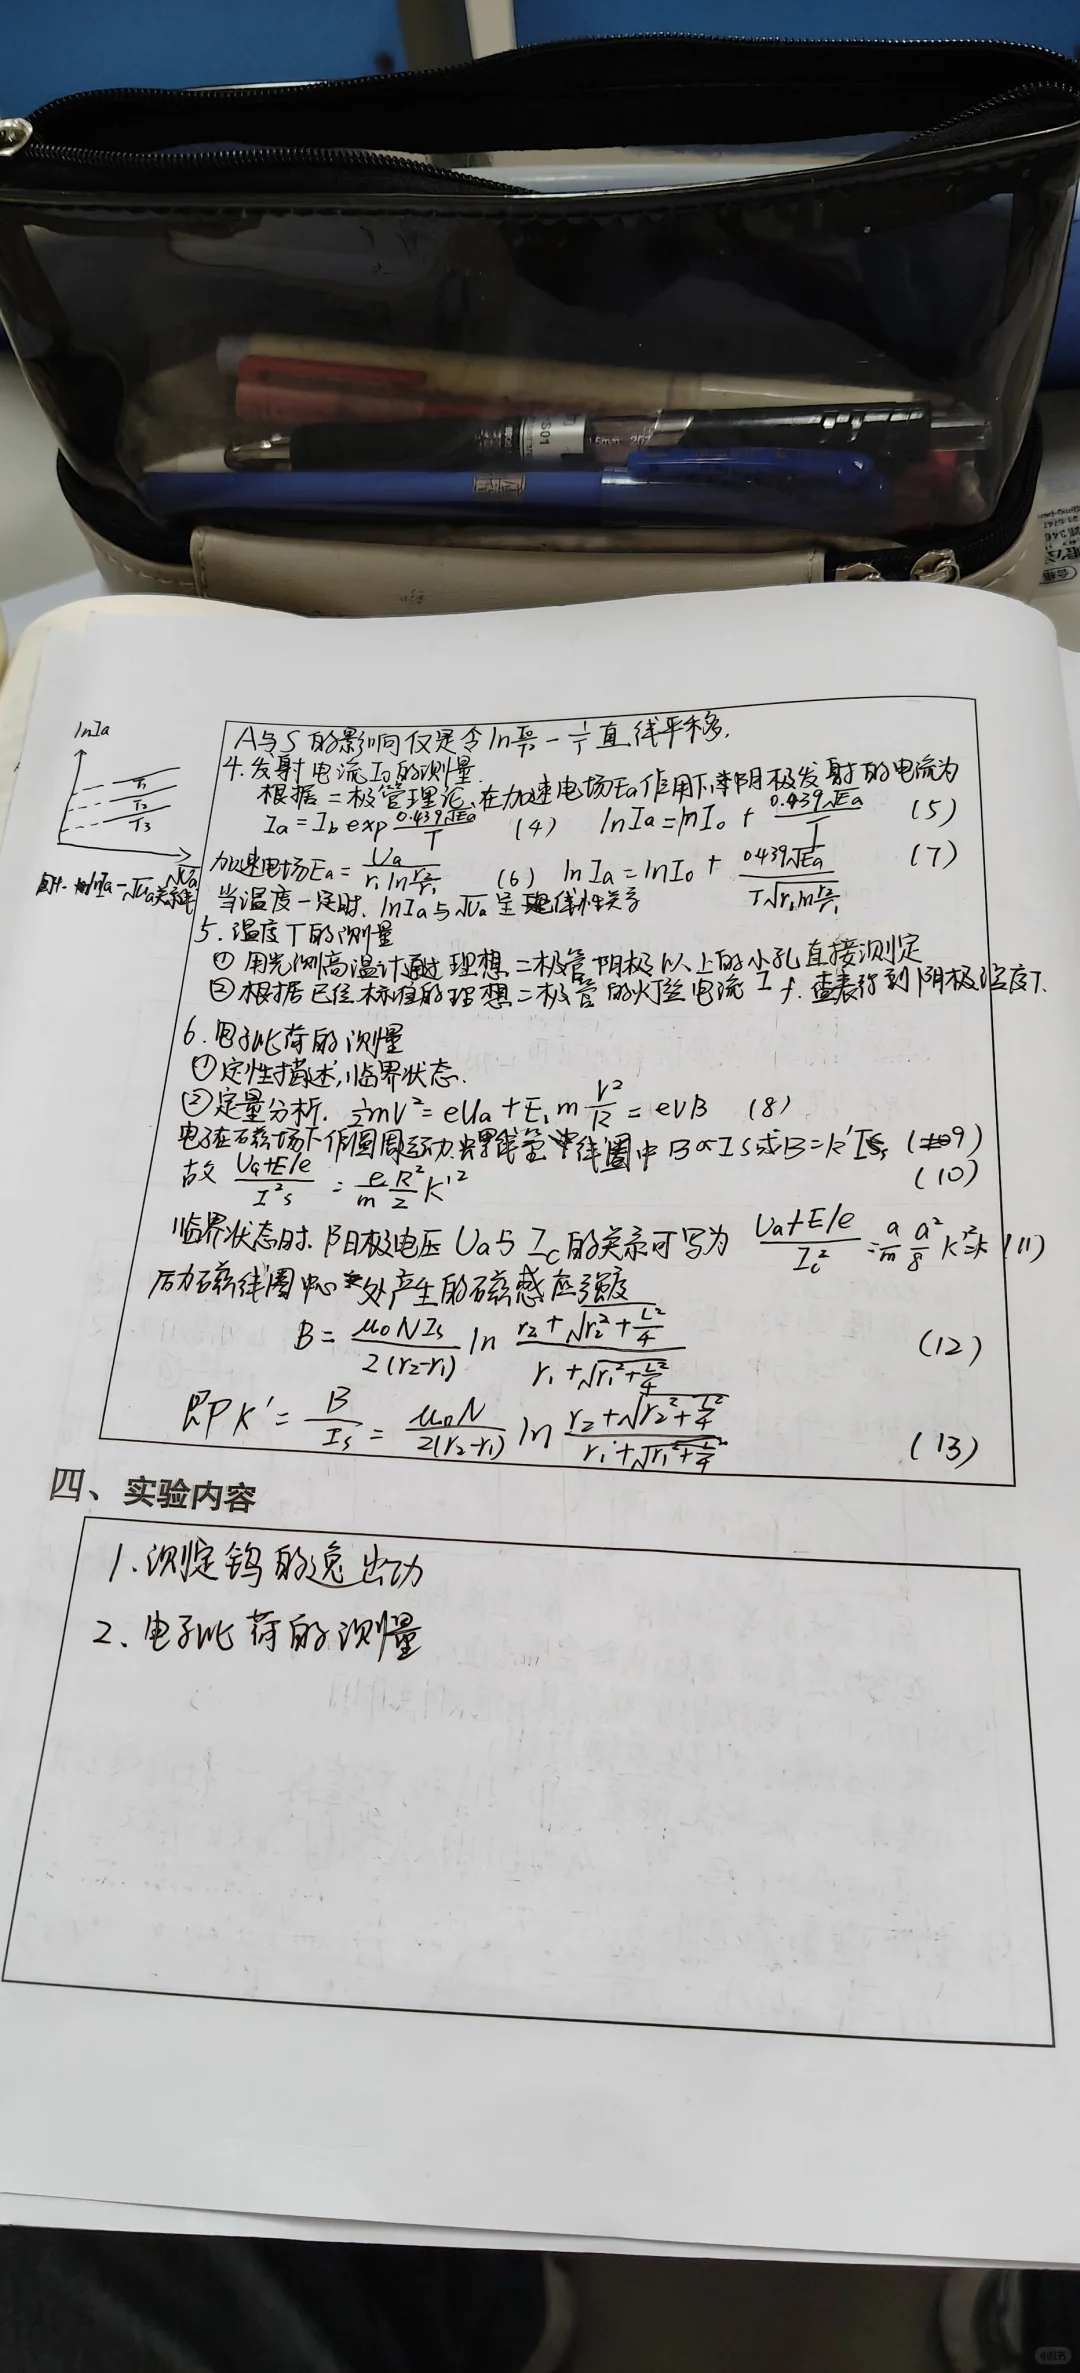 S01
lnIa
T1
T2
T3
√Ua
lnIa-√Ua关系
A与S的影响仅是含ln I0/T² - 1/T 直线平移.
4.发射电流I0的测量.
根据二极管理论,在加速电场Ea作用下,阴极发射的电流为
Ia = Ib exp 0.439√Ea/T (4) lnIa = lnI0 + 0.439√Ea/T (5)
加速电场Ea = Ua/(r1 ln r2/r1) (6) lnIa = lnI0 + 0.439√Ea/(T√(r1 ln r2/r1)) (7)
当温度一定时. lnIa与√Ua呈线性关系
5.温度T的测量
① 用光测高温计通过理想二极管阳极以上的小孔直接测定
② 根据已经标准的理想二极管的灯丝电流If.查表得到阴极温度T.
6.电子比荷的测量
①定性描述,临界状态.
②定量分析. ½mV² = eUa + E, m V²/R = eVB (8)
电子在磁场下作圆周运动.螺线管中线圈中B∝Is或B=k'Is (9)
故 (Ua+E/e)/I²s = e/m R²/2 K'² (10)
临界状态时.阳极电压Ua与Ic的关系可写为 (Ua+E/e)/Ic² = a/m a²/8 k'²=k (11)
厉力磁线圈中心处产生的磁感应强度
B = μ0NIs/2(r2-r1) ln (r2+√(r2²+L²/4))/(r1+√(r1²+L²/4)) (12)
即K' = B/Is = μ0N/2(r2-r1) ln (r2+√(r2²+L²/4))/(r1+√(r1²+L²/4)) (13)
四、实验内容
1.测定钨的逸出功
2、电子比荷的测量
小红书